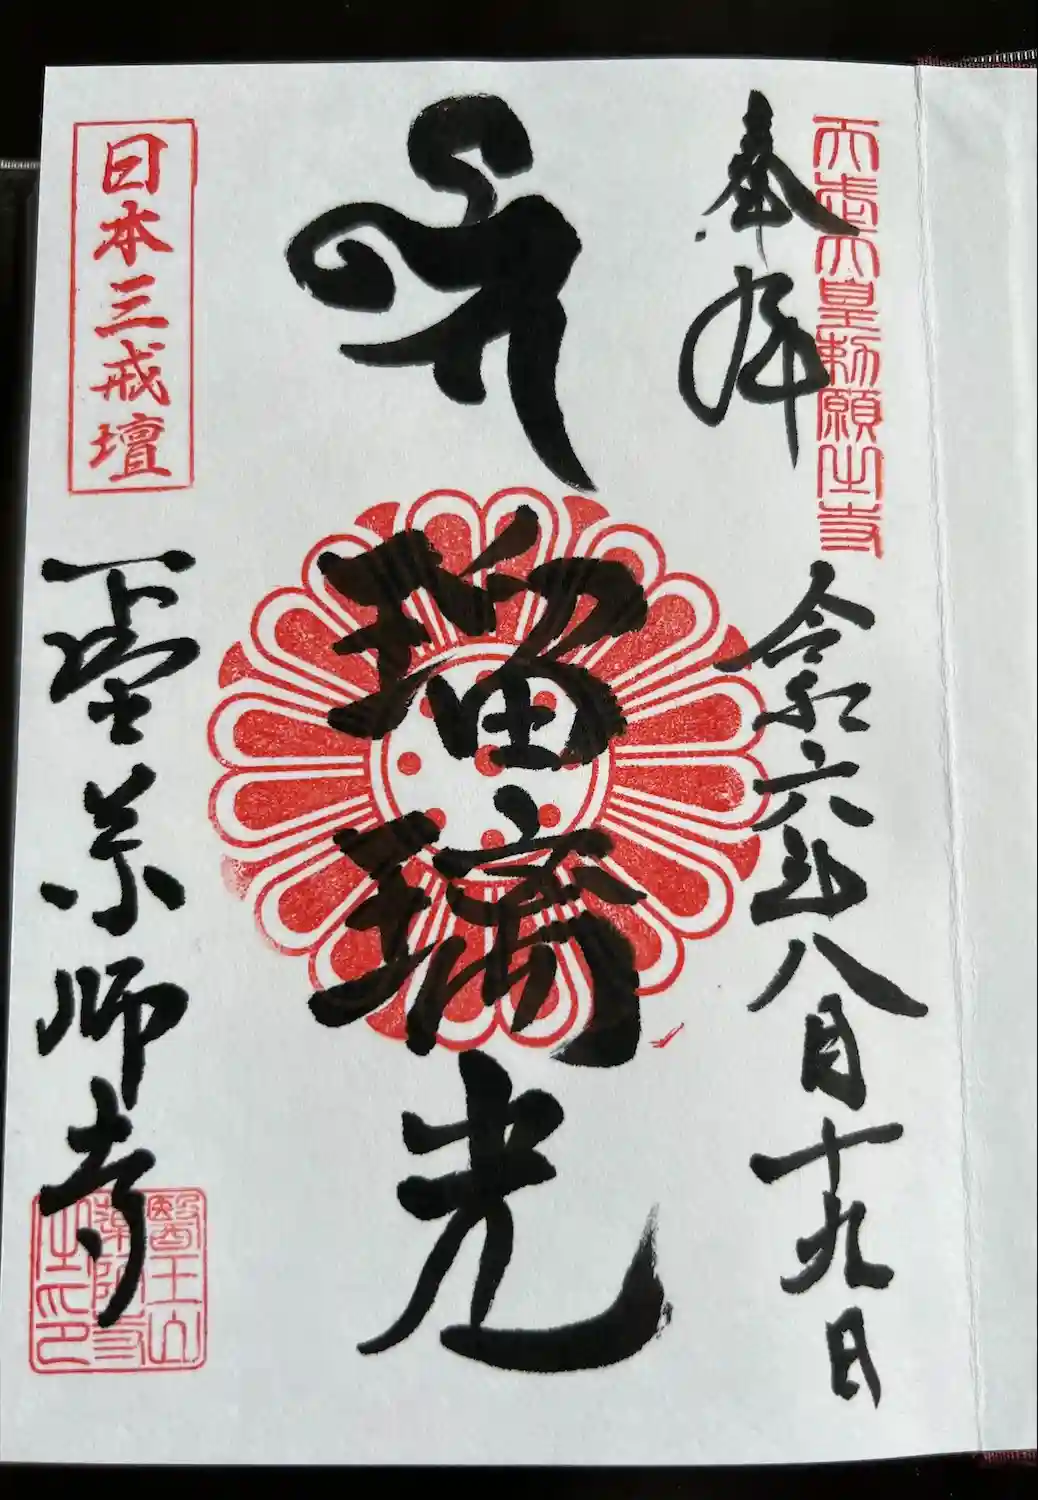 天武天皇勅願之寺
奉拝
令和六年八月十九日
瑠璃光
日本三戒壇
下埜薬師寺
醫王山
薬師寺
之印